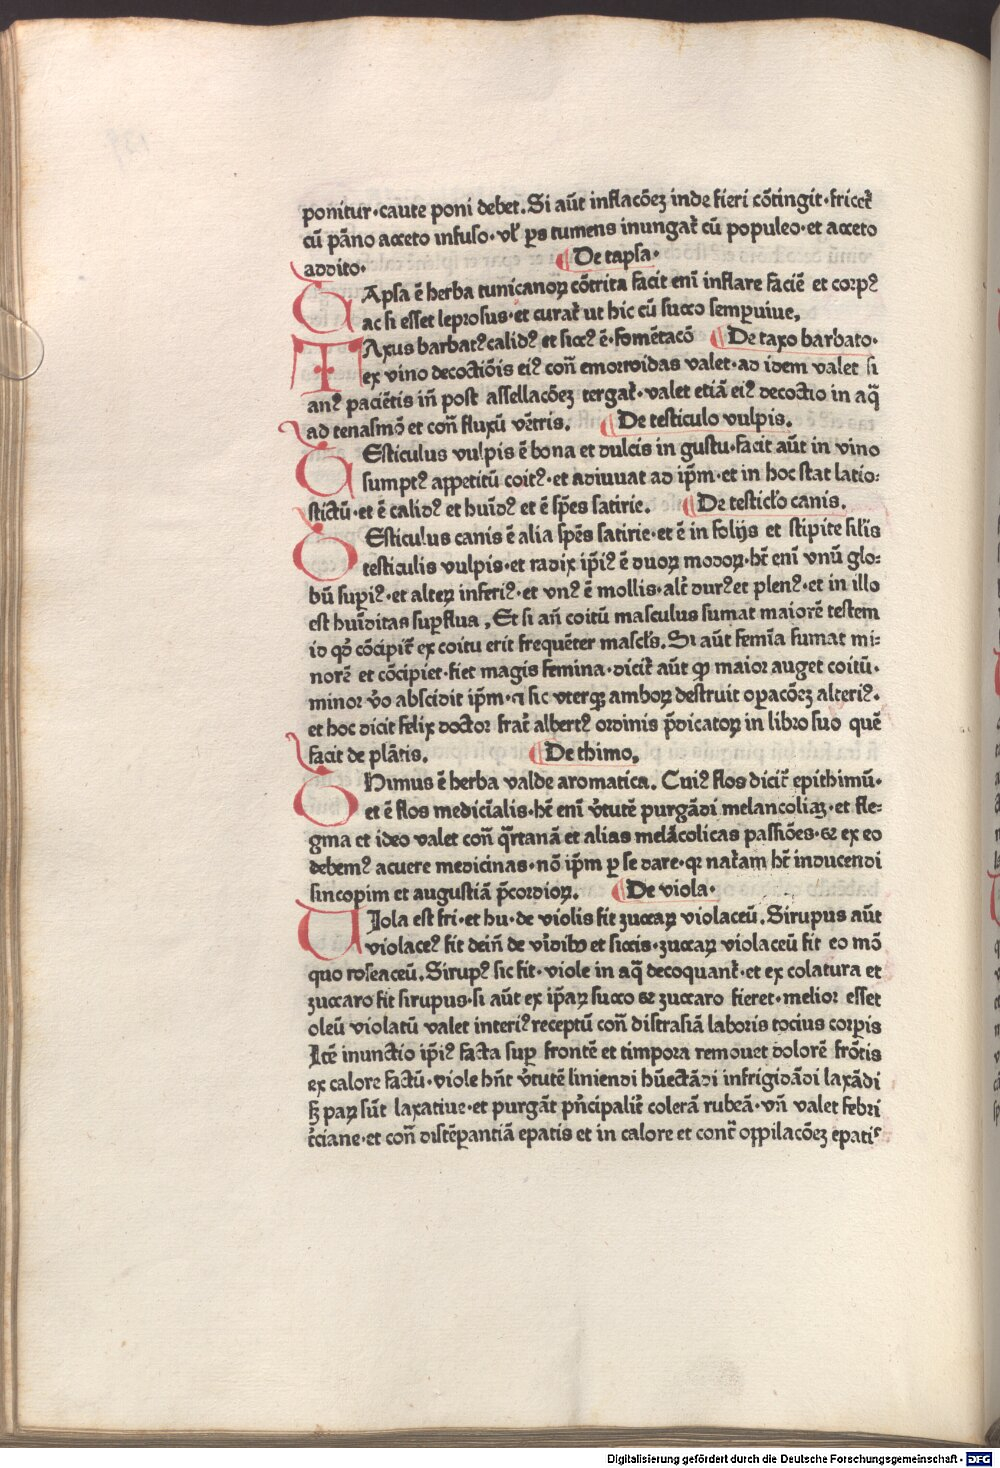 ponitur·caute poni debet.Si aūt inflacōeꝫ inde fieri cōtingit·fricet᷑
cū pāno aceto infuso·vl̓ ꝑs tumens inungat᷑ cū populeo·et aceto
addito· ¶ De tapsa·
TApsa ē herba tunicanoꝝ cōtrita facit enī inflare faciē et corpꝰ
ac si esset leprosus·et curat᷑ ut hic cū succo semꝑuiue,
TAxus barbatꝰ calidꝰ et siccꝰ ē·fomētacō ¶ De taxo barbato·
ex vino decoctiōis eiꝰ con̄ emorroidas valet·ad idem valet si
anꝰ paciētis in̄ post assellacōeꝫ tergat᷑·valet etiā eiꝰ decoctio in aq̄
ad tenasmō et con̄ fluxū vētris. ¶ De testiculo vulpis.
TEsticulus vulpis ē bona et dulcis in gustu·facit aūt in vino
sumptꝰ appetitū coitꝰ·et adiuuat ad ip̄m·et in hoc stat latio-
stictū·et ē calidꝰ et huīdꝰ et ē sp̄es satirie. ¶ De testicl̓o canis.
TEsticulus canis ē alia sp̄es satirie·et ē in folijs et stipite sil̓is
testiculis vulpis·et radix ip̄iꝰ ē duoꝝ modoꝝ·ht̄ enī vnū glo-
bū suꝑiꝰ·et alteꝝ inferiꝰ·et vnꝰ ē mollis·alt᷑ durꝰ et plenꝰ·et in illo
est huīditas suꝑflua, Et si an̄ coitū masculus sumat maiorē testem
id qd̓ cōcipit᷑ ex coitu erit frequēter mascl̓s.Si aūt femīa sumat mi-
norē et cōcipiet·fiet magis femina·dicit᷑ aūt ꝙ maior auget coitū·
minor v̓o abscidit ip̄m·⁊ sic vterqꝫ amboꝝ destruit oꝑacōeꝫ alteriꝰ·
et hoc dicit felix doctor frat᷑ albertꝰ ordinis p̄dicatoꝝ in libro suo quē
facit de plātis. ¶ De thimo,
THimus ē herba valde aromatica. Cuiꝰ flos dicit᷑ epithimū·
et ē flos medicīalis·ht̄ enī v̓tutē purgādi melancoliaꝫ·et fle-
gma et ideo valet con̄ q̄rtanā et alias melācolicas passiōes·⁊ ex eo
debemꝰ acuere medicinas·nō ip̄m ꝑ se dare·qꝛ nat᷑am ht̄ inducendi
sincopim et augustiā p̄cordioꝝ. ¶ De viola·
UIola est fri·et hu·de violis fit zuccaꝝ violaceū.Sirupus aūt
violaceꝰ fit dein̄ de v̓idibꝰ et siccis·zuccaꝝ violaceū fit eo mō
quo roseaceū.Sirupꝰ sic fit·viole in aq̄ decoquant᷑·et ex colatura et
zuccaro fit sirupus·si aūt ex ip̄aꝝ succo ⁊ zuccaro fieret·melior esset
oleū violatū valet interiꝰ receptū con̄ distrasiā laboris tocius corꝑis
Itē inunctio ip̄iꝰ facta suꝑ frontē et timpora remouet dolorē frōtis
ex calore factū·viole hn̄t v̓tutē liniendi hūectādi infrigidādi laxādi
sꝫ paꝝ sūt laxatiue·et purgāt pn̄cipalit᷑ colerā rubeā·vn̄ valet febri
t᷑ciane·et con̄ distēꝑantiā epatis et in calore et cont᷑ oppilacōeꝫ epatis
Digitalisierung gefördert durch die Deutsche Forschungsgemeinschaft - DFG